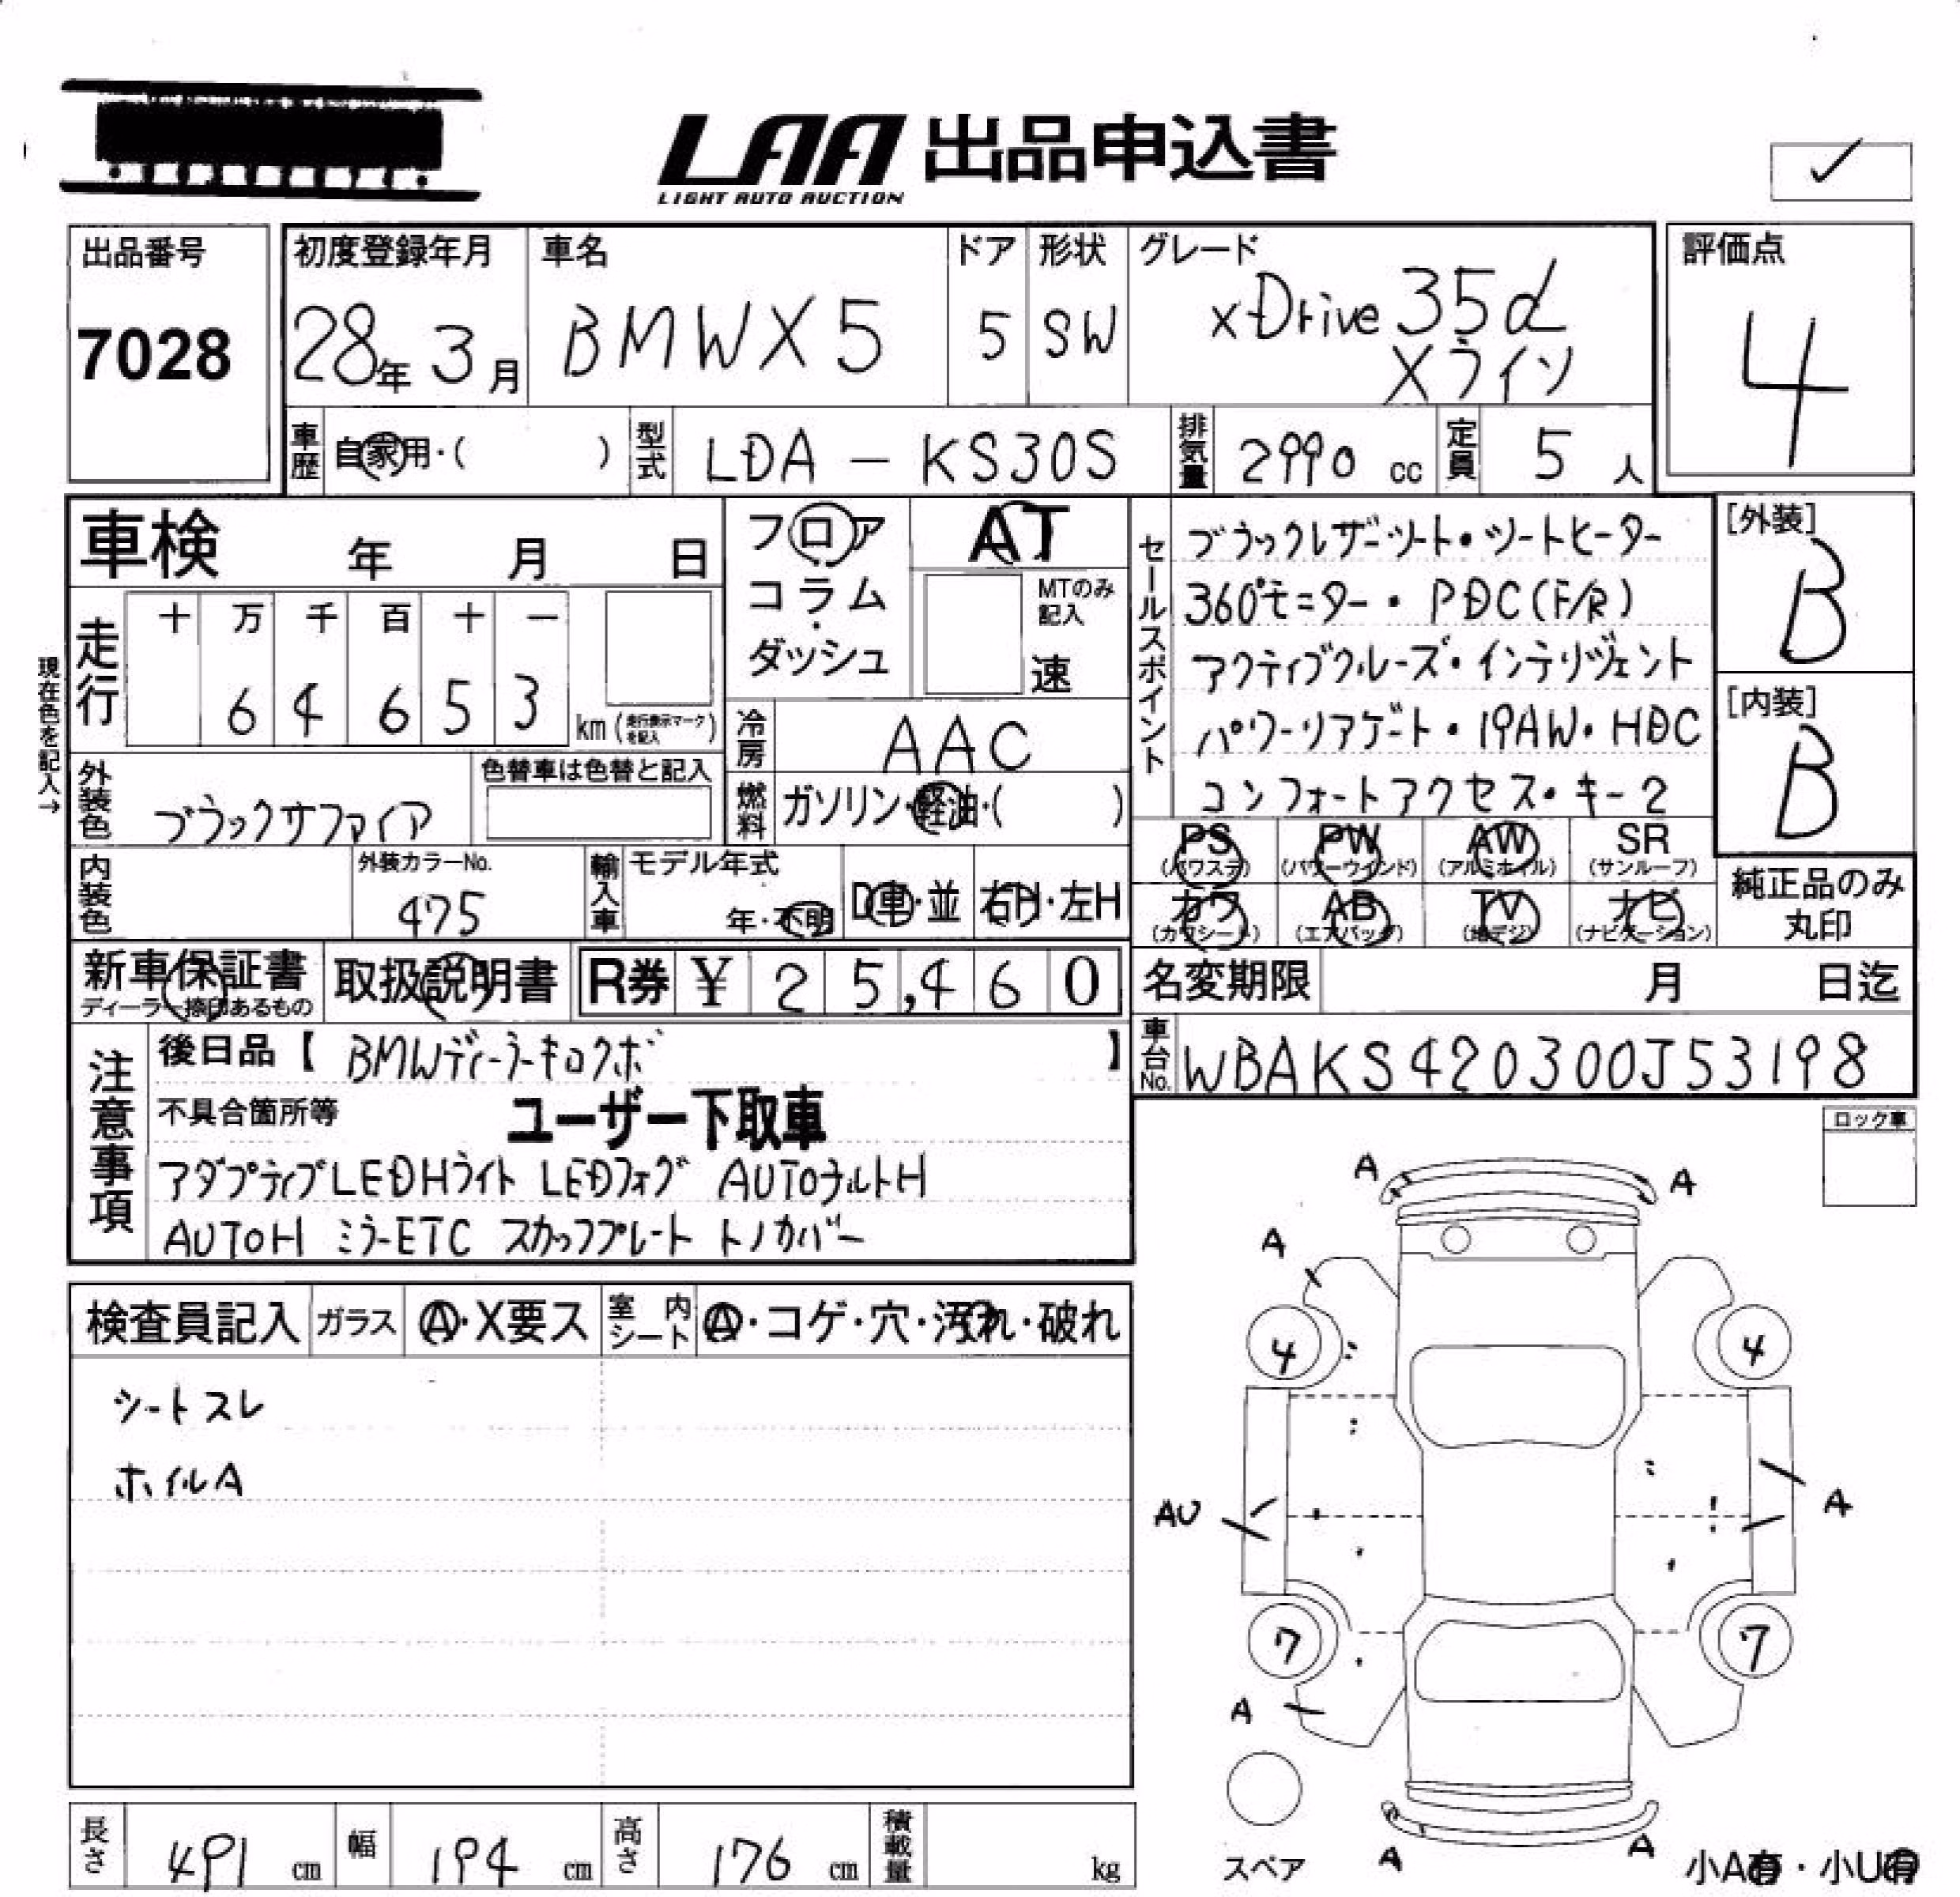 LAA 出品申込書
LIGHT AUTO AUCTION
出品番号
7028
初度登録年月
28年 3月
車名
BMW X5
ドア
5
形状
SW
グレード
xDrive 35d
Xライン
評価点
4
車歴 自家用・( )
型式 LDA - KS30S
排気量 2990 cc
定員 5 人
車検 年 月 日
フロア
コラム
・
ダッシュ
AT
MTのみ
記入
速
走行
十 万 千 百 十 一
6 4 6 5 3
km (走行表示マークを記入)
現在色を記入→
冷房 AAC
燃料 ガソリン・軽油・( )
外装色 ブラックサファイア
色替車は色替と記入
内装色
外装カラーNo.
475
輸入車
モデル年式
年・不明
D車・並
右H・左H
セールスポイント
ブラックレザーシート・シートヒーター
360°モニター・PDC(F/R)
アクティブクルーズ・インテリジェント
パワーリアゲート・19AW・HDC
コンフォートアクセス・キー2
[外装]
B
[内装]
B
PS
(パワステ)
PW
(パワーウインド)
AW
(アルミホイル)
SR
(サンルーフ)
カワ
(カワシート)
AB
(エアバッグ)
TV
(地デジ)
ナビ
(ナビゲーション)
純正品のみ
丸印
新車保証書
ディーラー捺印あるもの
取扱説明書
R券 ¥ 25,460
名変期限 月 日迄
車台No. WBAKS420300J53198
注意事項
後日品【 BMWディーラーキロクボ 】
不具合箇所等 ユーザー下取車
アダプティブLEDHライト LEDフォグ AUTOチルトH
AUTOH ミラーETC スカッフプレート トノカバー
ロック車
検査員記入
ガラス A・X要ス
室内シート A・コゲ・穴・汚れ・破れ
シートスレ
ホイルA
A
A
A
4
4
AU
A
7
7
A
A
A
スペア
小A有・小U有
長さ 491 cm
幅 194 cm
高さ 176 cm
積載量 kg